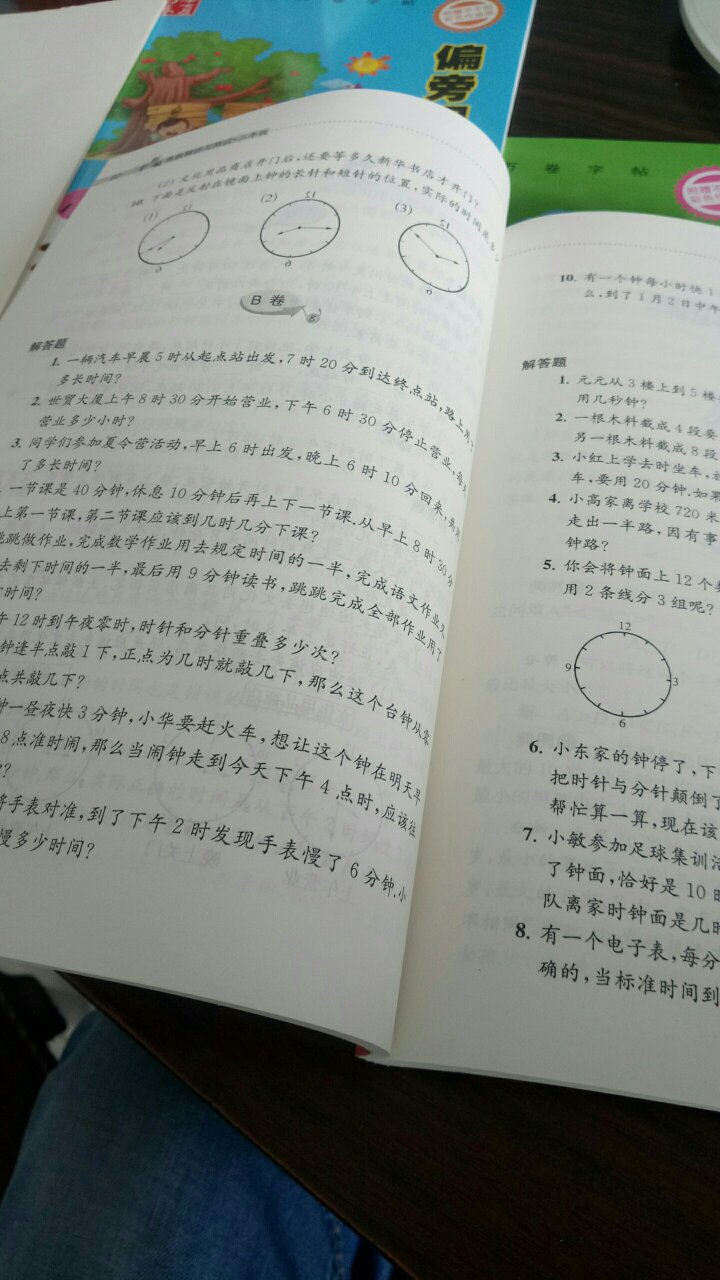 偏旁
巧卷字帖
附赠
彩色
(2) 文化用品商店开门后,还要等多久新华书店才开门?
10. 下面是反射在镜面上钟的长针和短针的位置,实际的时间是多少
(1) (2) (3)
12 12 12
6 6 6
B 卷
解答题
1. 一辆汽车早晨5时从起点站出发,7时20分到达终点站,路上用
多长时间?
2. 世贸大厦上午8时30分开始营业,下午6时30分停止营业,每
营业多少小时?
3. 同学们参加夏令营活动,早上6时出发,晚上6时10分回来,
了多长时间?
一节课是40分钟,休息10分钟后再上下一节课.从早上8时30分
上第一节课,第二节课应该到几时几分下课?
跳做作业,完成数学作业用去规定时间的一半,完成语文作业
去剩下时间的一半,最后用9分钟读书,跳跳完成全部作业用了
时间?
午12时到午夜零时,时针和分针重叠多少次?
钟逢半点敲1下,正点为几时就敲几下,那么这个台钟从零
点共敲几下?
钟一昼夜快3分钟,小华要赶火车,想让这个钟在明天早
8点准时闹,那么当闹钟走到今天下午4点时,应该往
?
将手表对准,到了下午2时发现手表慢了6分钟.小
慢多少时间?
10. 有一个钟每小时快1
么,到了1月2日中午
解答题
1. 元元从3楼上到5楼
用几秒钟?
2. 一根木料截成4段要
另一根木料截成8段
3. 小红上学去时坐车,
车,要用20分钟.如果
4. 小高家离学校720米
走出一半路,因有事
钟路?
5. 你会将钟面上12个
用2条线分3组呢?
12
9 3
6
6. 小东家的钟停了,下
把时针与分针颠倒了
帮忙算一算,现在该
7. 小敏参加足球集训
了钟面,恰好是10时
队离家时钟面是几时
8. 有一个电子表,每分
确的,当标准时间到